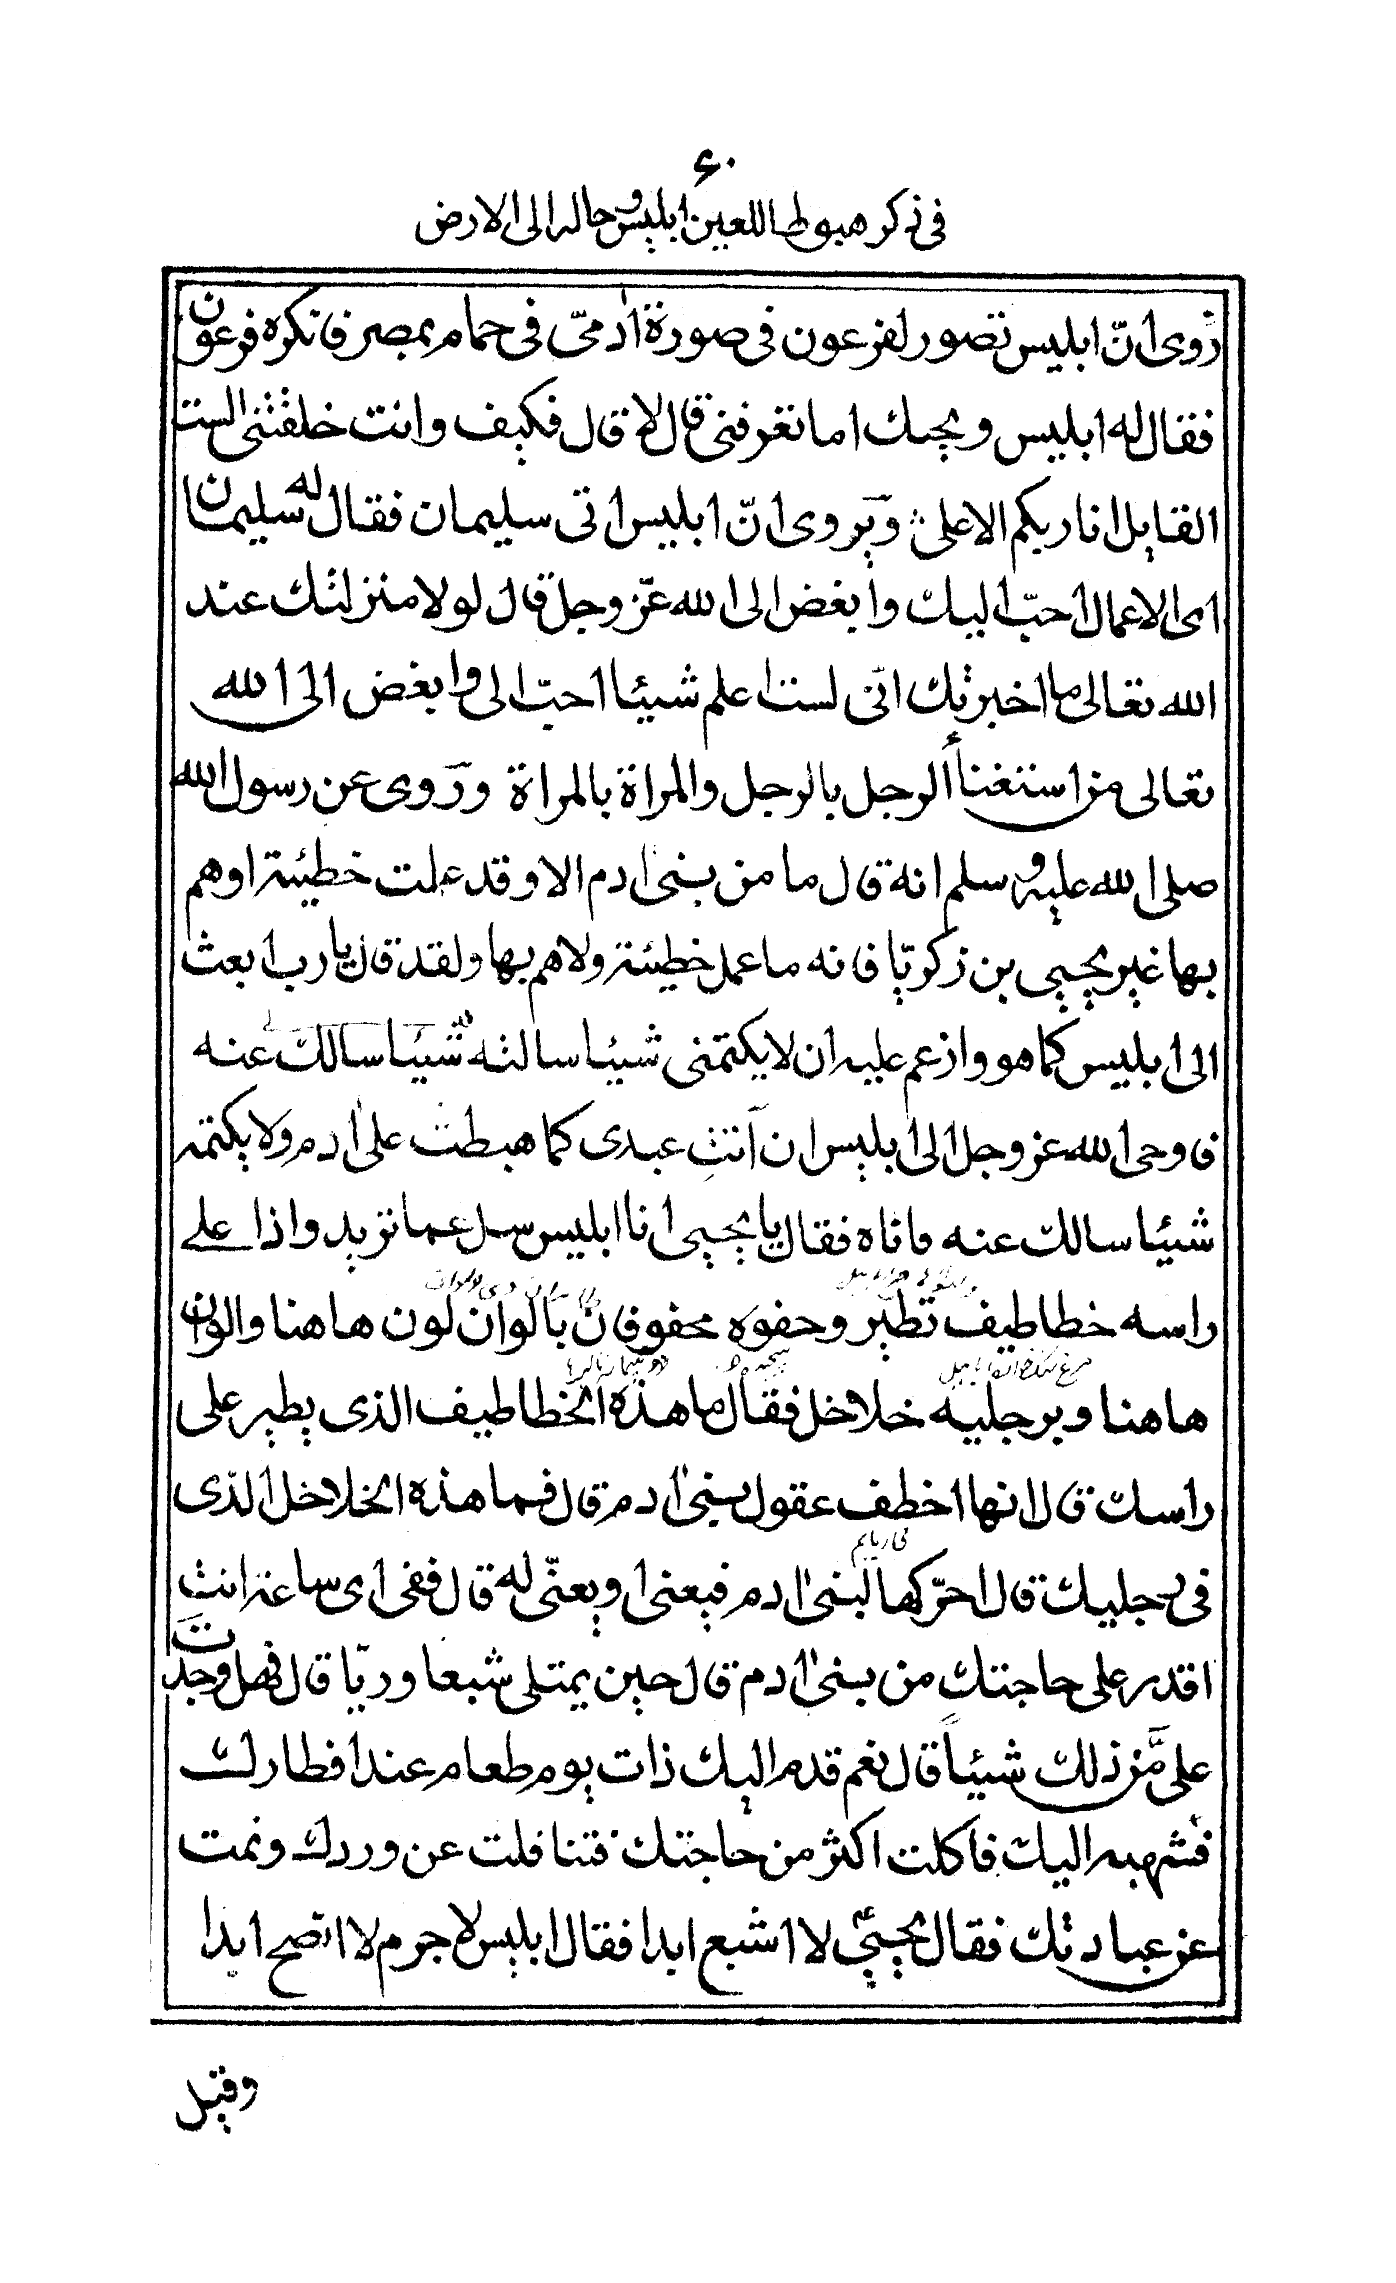 ۶۰
في ذكر هبوط اللعين ابليس وحاله الى الارض
رُوى انّ ابليس تصور لفرعون فى صورة ادمىّ فى حمام بمصر فانكره فرعون
فقال له ابليس ويحبك اما تعرفنى قال لا قال فكيف وانت خلقتنى الست
القايل انا ربكم الاعلى ويروى انّ ابليس اتى سليمان فقال له سليمان
اى الاعمال احبّ اليك وابغض الى الله عزّ وجل قال لولا منزلتك عند
الله تعالى ما اخبرتك انّى لست اعلم شيئا احبّ الى وابغض الى الله
تعالى من استغناء الرجل بالرجل والمراة بالمراة وروى عن رسول الله
صلى الله عليه وسلم انه قال ما من بنى ادم الا وقد عملت خطيئة اوهم
بها غير يحيى بن زكريّا فانه ما عمل خطيئة ولا هم بها ولقد قال يا رب ابعث
الى ابليس كما هو وازعم عليه ان لا يكتمنى شيئا سالته شيئا سالك عنه
فاوحى الله عز وجل الى ابليس ان آئت عبدى كما هبطت على ادم ولا يكتمه
شيئا سالك عنه فاتاه فقال يا يحيى انا ابليس سل عما تريد واذا على
راسه خطاطيف تطير وحفوه محفوفان بالوان لون هاهنا والوان
هاهنا وبرجليه خلاخل فقال ما هذه الخطاطيف الذى يطير على
راسك قال انها اخطف عقول بنى ادم قال فما هذه الخلاخل الذى
فى رجليك قال احرّكها لبنى ادم فيعنى او يعنّى له قال ففى اى ساعة انت
اقدر على حاجتك من بنى ادم قال حين يمتلى شبعا وريّا قال فهل وجدت
علىَّ من ذلك شيئاً قال نعم قدم اليك ذات يوم طعام عند افطارك
فشهبه اليك فاكلت اكثر من حاجتك فتنافلت عن وردك ونمت
عن عبادتك فقال يحيى لا اشبع ابدا فقال ابليس لا جرم لا انصح ابدا
وقيل